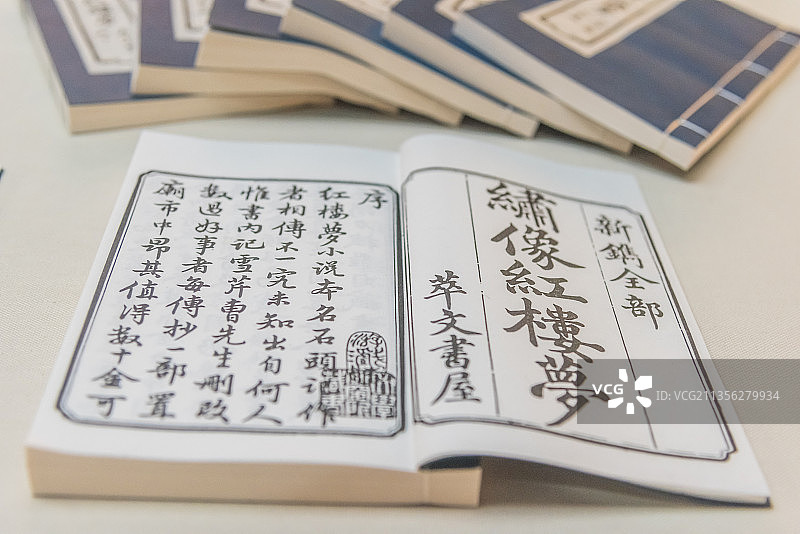 新鐫全部
繡像紅樓夢
萃文書屋
序
紅樓夢小說本名石頭記作
者相傳不一究未知出自何人
惟書內記雪芹曹先生刪改
數過好事者每傳抄一部置
廟市中昂其值得數十金可
VCG
VCG211356279934